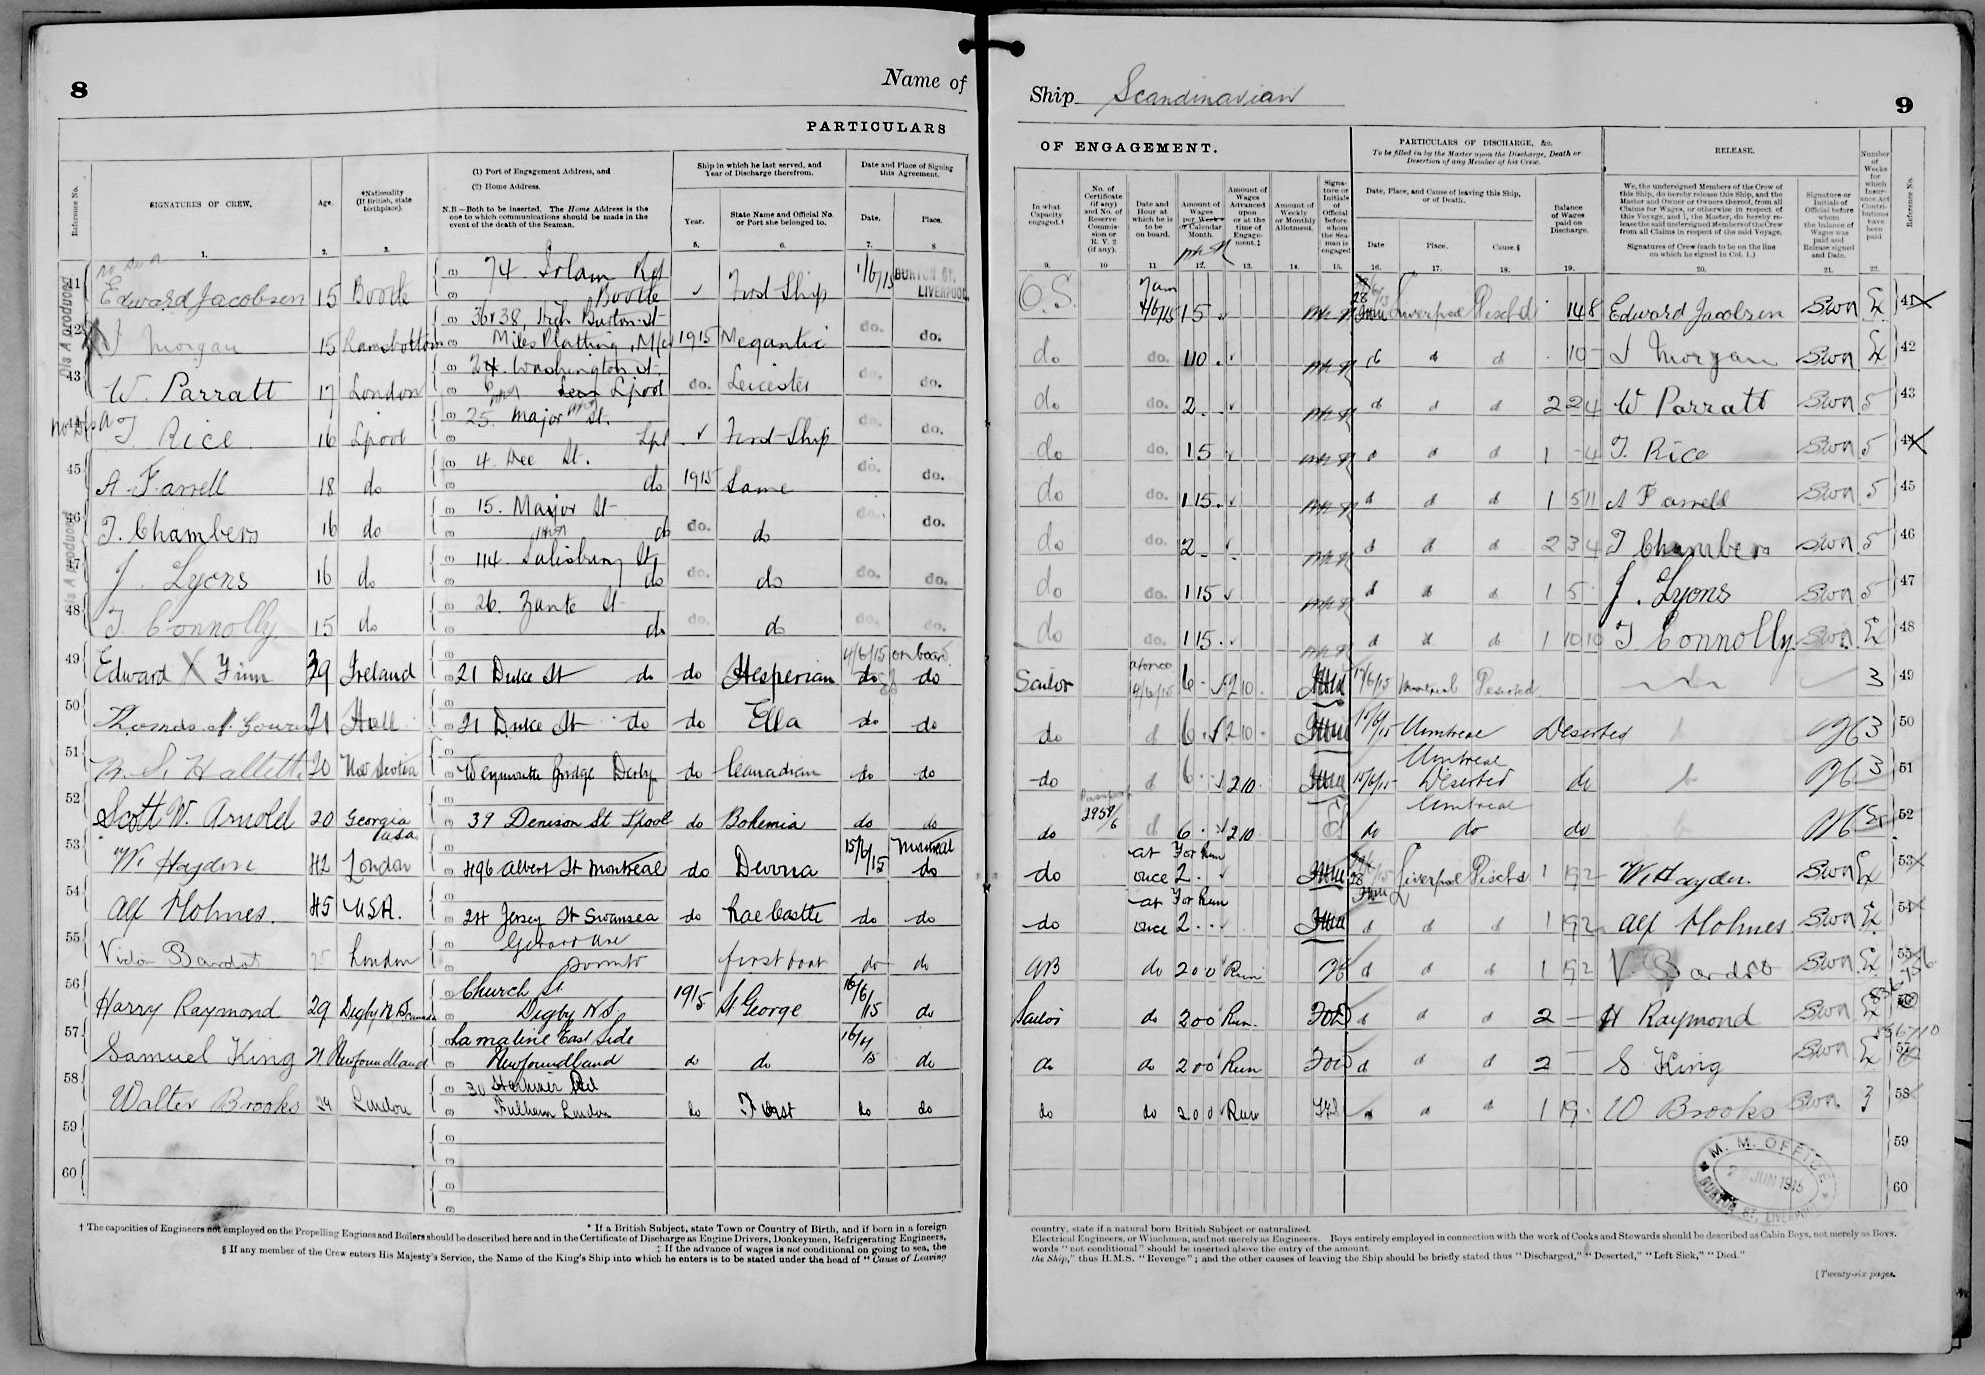 8
Name of
PARTICULARS
Reference No.
SIGNATURES OF CREW.
Age.
*Nationality (If British, state birthplace).
(1) Port of Engagement Address, and
(2) Home Address.
N.B.—Both to be inserted. The Home Address is the one to which communications should be made in the event of the death of the Seaman.
Ship in which he last served, and Year of Discharge therefrom.
Year.
State Name and Official No. or Port she belonged to.
Date and Place of Signing this Agreement.
Date.
Place.
1. 2. 3. 5. 6. 7. 8
41 Edward Jacobsen 15 Bootle 74 Rd Bootle ✓ First Ship 1/6/15 BURTON ST, LIVERPOOL
42 J Morgan 15 Ramsbottom 36 & 38, High Burton St Miles Platting, M/c 1915 Megantic do. do.
43 W. Parratt 17 London 24 Washington St, Lpool do. Leicester do. do.
44 T. Rice 16 Lpool 25 Major St. Lpl ✓ First Ship do. do.
45 A. Farrell 18 do 4. Dee St. do 1915 Same do. do.
46 T. Chambers 16 do 15. Major St do do. do do. do.
47 J. Lyons 16 do 114. Salisbury St, do do. do do. do.
48 T. Connolly 15 do 26. Zante St do do. do do. do.
49 Edward X Finn 39 Ireland 21 Duke St do do Hesperian 4/6/15 on board do do
50 Thomas 21 Hull 21 Duke St do do Ella do do
51 Hallett 20 Nova Scotia Weymouth Bridge Derby do Canadian do do
52 Scott W. Arnold 20 Georgia USA 39 Denison St Lpool do Bohemia do do
53 W. Hayden 42 London 496 Albert St Montreal do Devona 15/6/15 Montreal do
54 Alf Holmes. 45 USA. 24 Jersey St Swansea do Rae Castle do do
55 Victor Bardot London Gerard Ave Toronto first boat do do
56 Harry Raymond 29 Digby N.S. Canada Church St. Digby N.S. 1915 St George 16/6/15 do
57 Samuel King 21 Newfoundland Lamaline East Side Newfoundland do do 16/6/15 do
58 Walter Brooks 24 London 30 Rd Fulham London do First do do
59
60
† The capacities of Engineers not employed on the Propelling Engines and Boilers should be described here and in the Certificate of Discharge as Engine Drivers, Donkeymen, Refrigerating Engineers,
* If a British Subject, state Town or Country of Birth, and if born in a foreign
‡ If the advance of wages is not conditional on going to sea, the
§ If any member of the Crew enters His Majesty's Service, the Name of the King's Ship into which he enters is to be stated under the head of "Cause of Leaving
Ship Scandinavian
9
OF ENGAGEMENT.
PARTICULARS OF DISCHARGE, &c.
To be filled in by the Master upon the Discharge, Death or Desertion of any Member of his Crew.
RELEASE.
In what Capacity engaged.†
No. of Certificate (if any) and No. of Reserve Commission or R.V.2 (if any).
Date and Hour at which he is to be on board.
Amount of Wages per Week or Calendar Month.
Amount of Wages Advanced upon or at the time of Engagement.‡
Amount of Weekly or Monthly Allotment.
Signature or Initials of Official before whom the Seaman is engaged
Date, Place, and Cause of leaving this Ship, or of Death.
Date
Place.
Cause.§
Balance of Wages paid on Discharge.
We, the undersigned Members of the Crew of this Ship, do hereby release this Ship, and the Master and Owner or Owners thereof, from all Claims for Wages, or otherwise in respect of this Voyage, and I, the Master, do hereby release the said undersigned Members of the Crew from all Claims in respect of the said Voyage.
Signatures of Crew (each to be on the line on which he signed in Col. 1.)
Signature or Initials of Official before whom the balance of Wages was paid and Release signed and Date.
Number of Weeks for which Insurance Act Contributions have been paid
Reference No.
9. 10 11. 12. 13. 14. 15. 16. 17. 18. 19. 20. 21. 22.
O.S. 7am 4/6/15 15 Liverpool Disch'd 1 4 8 Edward Jacobsen Swn 41
do do. 1 10 d d d 10 - J Morgan Swn 42
do do. 2 d d d 2 2 4 W Parratt Swn 5 43
do do. 15 d d d 1 - 4 T. Rice Swn 5 44
do do. 1 15 d d d 1 5 11 A Farrell Swn 5 45
do do. 2 d d d 2 3 4 T Chambers Swn 5 46
do do. 1 15 d d d 1 5 J. Lyons Swn 5 47
do do. 1 15 d d d 1 10 10 T Connolly Swn 48
Sailor at once 4/6/15 6 2 10 15/6/15 Montreal Deserted 3 49
do d 6 2 10 15/6/15 Montreal Deserted 3 50
do d 6 2 10 15/6/15 Montreal Deserted do 3 51
do d 6 2 10 d do Montreal do do 52
do at once For Run 2 Liverpool Disch'd 1 19 2 W. Hayden. Swn 53
do at once For Run 2 d d d 1 19 2 Alf Holmes Swn 54
AB do 2 0 0 Run d d d 1 19 2 V. Bardot Swn 55
Sailor do 2 0 0 Run d d d 2 — H Raymond Swn
do do 2 0 0 Run d d d 2 — S King Swn 57
do do 2 0 0 Run d d 1 19 W Brooks Swn 3 58
59
60
M. M. OFFICE
JUN 1915
BURTON ST. LIVERPOOL
country, state if a natural born British Subject or naturalized.
Electrical Engineers, or Winchmen, and not merely as Engineers. Boys entirely employed in connection with the work of Cooks and Stewards should be described as Cabin Boys, not merely as Boys.
words "not conditional" should be inserted above the entry of the amount.
the Ship," thus H.M.S. "Revenge"; and the other causes of leaving the Ship should be briefly stated thus "Discharged," "Deserted," "Left Sick," "Died."
[Twenty-six pages.